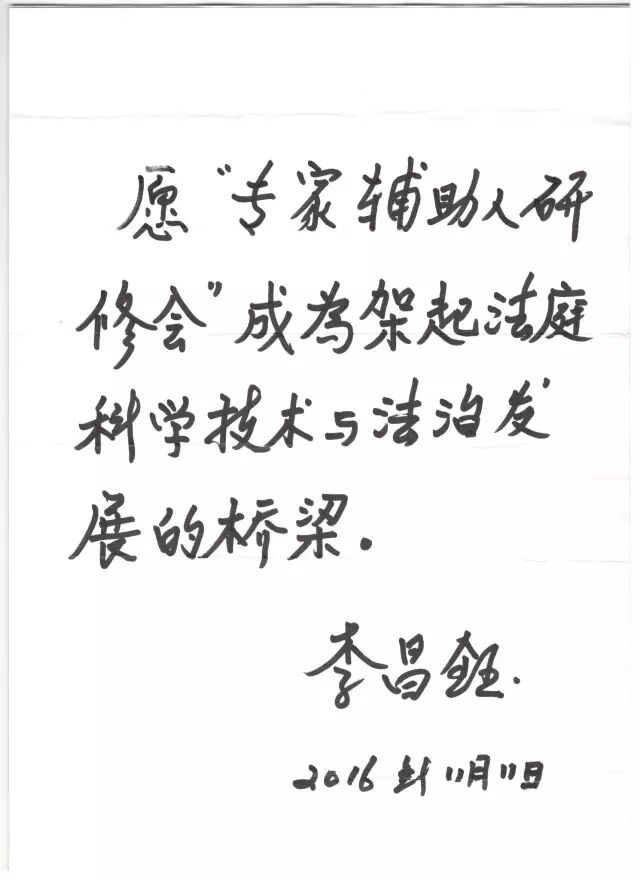 愿“专家辅助人研
修会”成为架起法庭
科学技术与法治发
展的桥梁.
李昌钰.
2016年11月11日